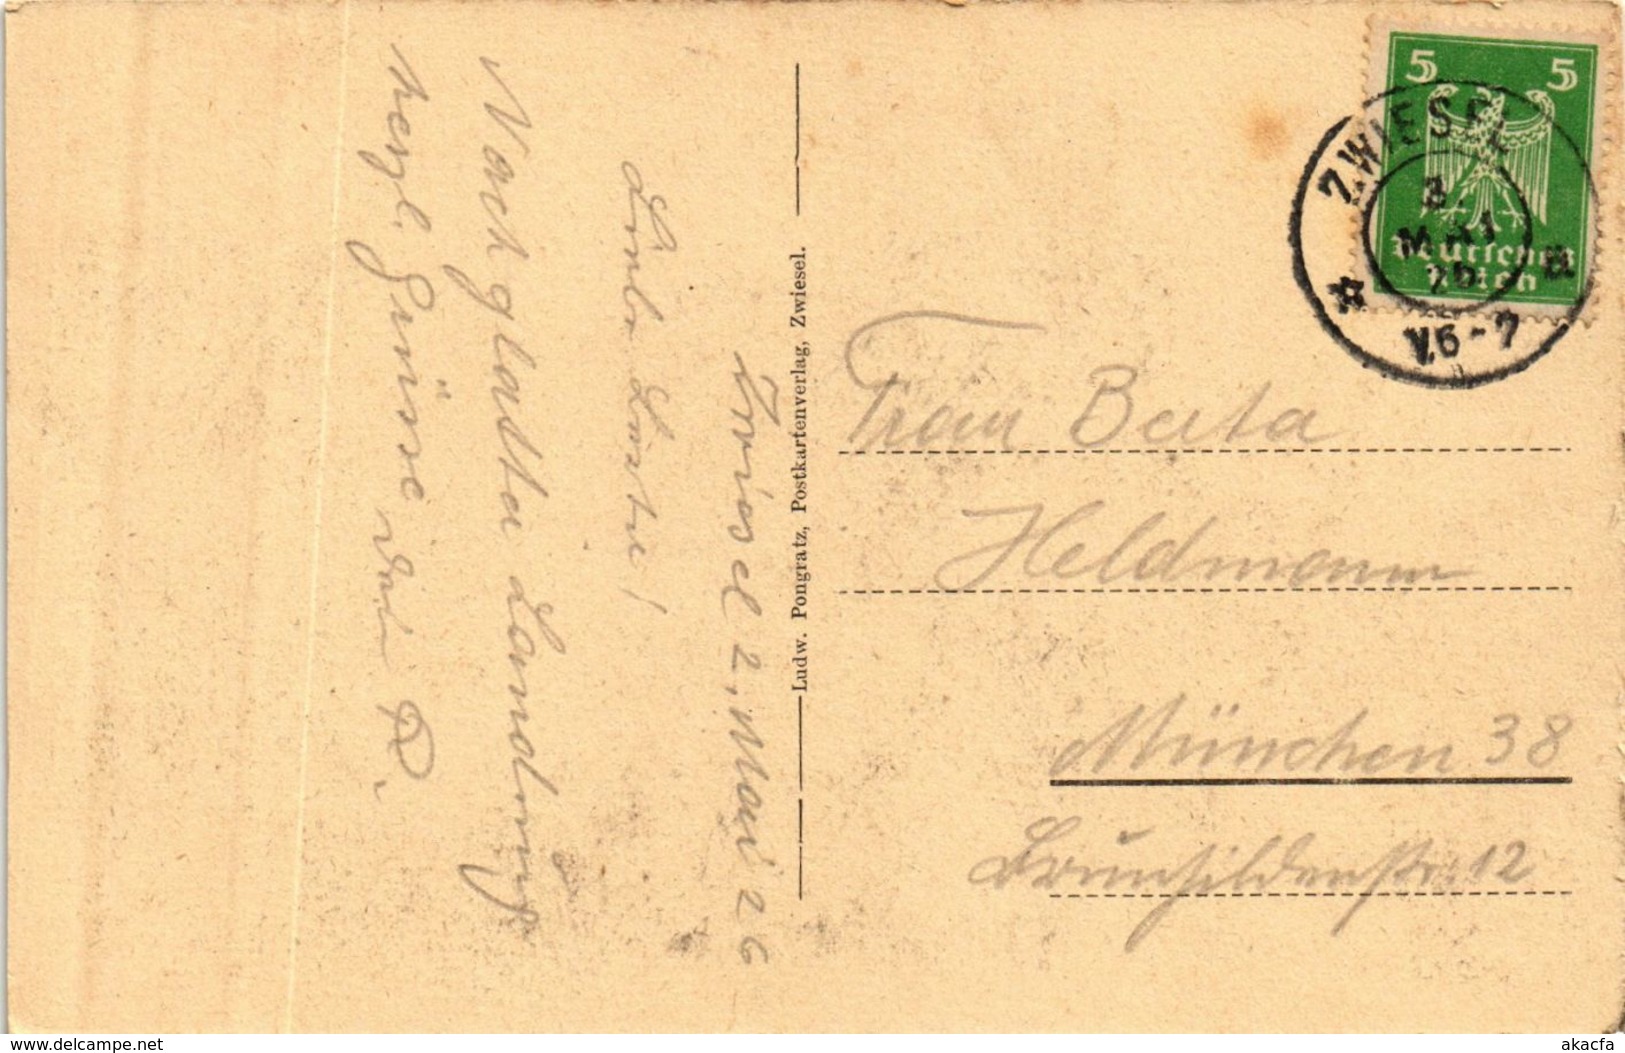 5 5
ZWIESEL
3.
MAI
26
V6-7
Deutsches
Reich
Frau Berta
Heldmann
München 38
Brunhildenstr. 12
Ludw. Pongratz, Postkartenverlag, Zwiesel.
Zwiesel 2. Mai 26
Liebe Berta!
Nach glatter Landung
herzl. Grüsse dein R.
www.delcampe.net
akacfa